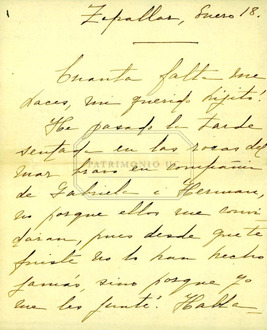 Zapallar, Enero 18.
Cuanta falta me
haces, mi querido hijito!
He pasado la tarde
sentada en las rocas del
mar bravo en compañia
de Gabriela i Herman,
no porque ellos me convi
daran, pues desde que te
fuiste no lo han hecho
jamas, sino porque yo
me les junté! Habla-
PATRIMONIO